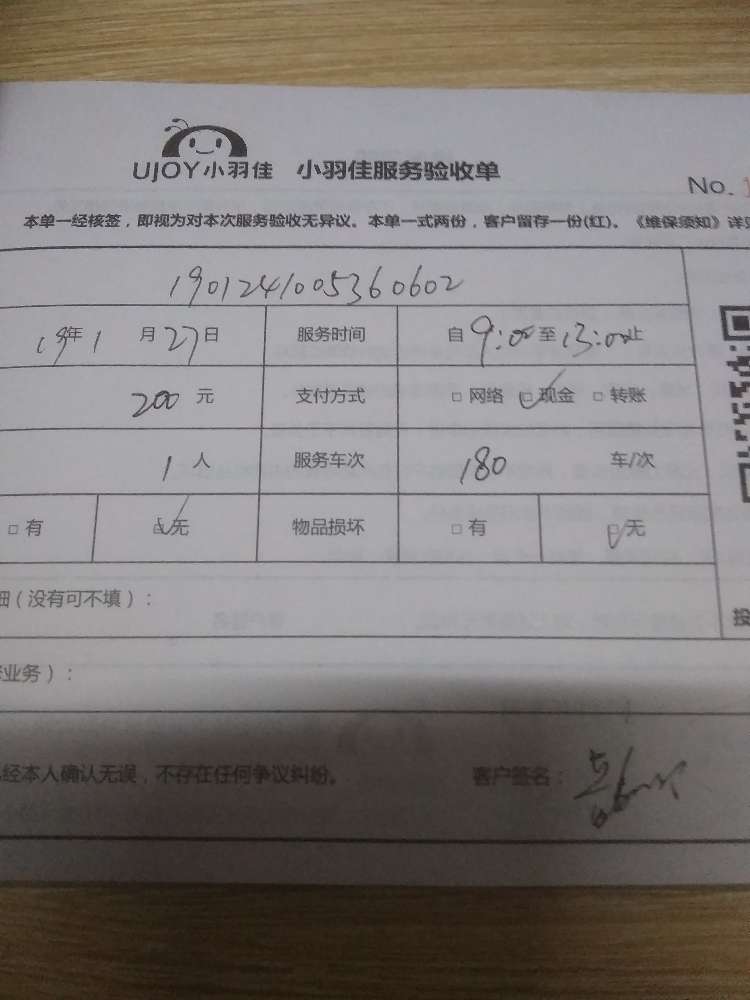 UJOY小羽佳 小羽佳服务验收单
No. 1
本单一经核签，即视为对本次服务验收无异议。本单一式两份，客户留存一份(红)。《维保须知》详见
1901241005360602
19年1月27日 服务时间 自9:00至13:00止
200元 支付方式 □网络 ☑现金 □转账
1人 服务车次 180 车/次
□有 ☑无 物品损坏 □有 ☑无
细（没有可不填）：
投
业务）：
经本人确认无误，不存在任何争议纠纷。 客户签名：